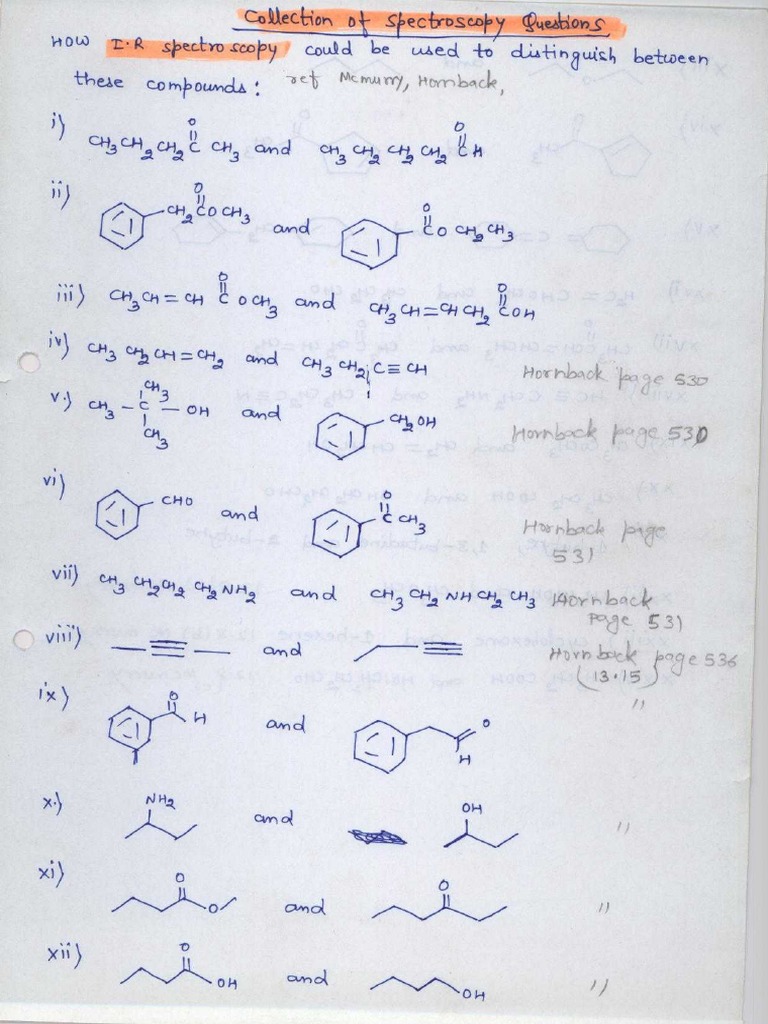 Collection of Spectroscopy Questions
How I.R spectroscopy could be used to distinguish between
these compounds: ref Mcmurry, Hornback,
i) CH3CH2CH2 C(=O) CH3 and CH3 CH2 CH2 CH2 C(=O)H
ii) CH2COCH3 O and COCH2CH3 O
iii) CH3CH=CH C(=O) OCH3 and CH3CH=CHCH2 C(=O)OH
iv) CH3 CH2CH=CH2 and CH3 CH2 C≡CH Hornback page 530
v.) CH3 - C(CH3)(CH3) - OH and CH2OH Hornback page 531
vi) CHO and C(=O)CH3 Hornback page
531
vii) CH3 CH2CH2 CH2NH2 and CH3 CH2 NH CH2 CH3 Hornback
page 531
viii) and Hornback page 536
(13.15)
ix) O H and O H "
x.) NH2 and OH "
xi) O O and O "
xii) O OH and OH "